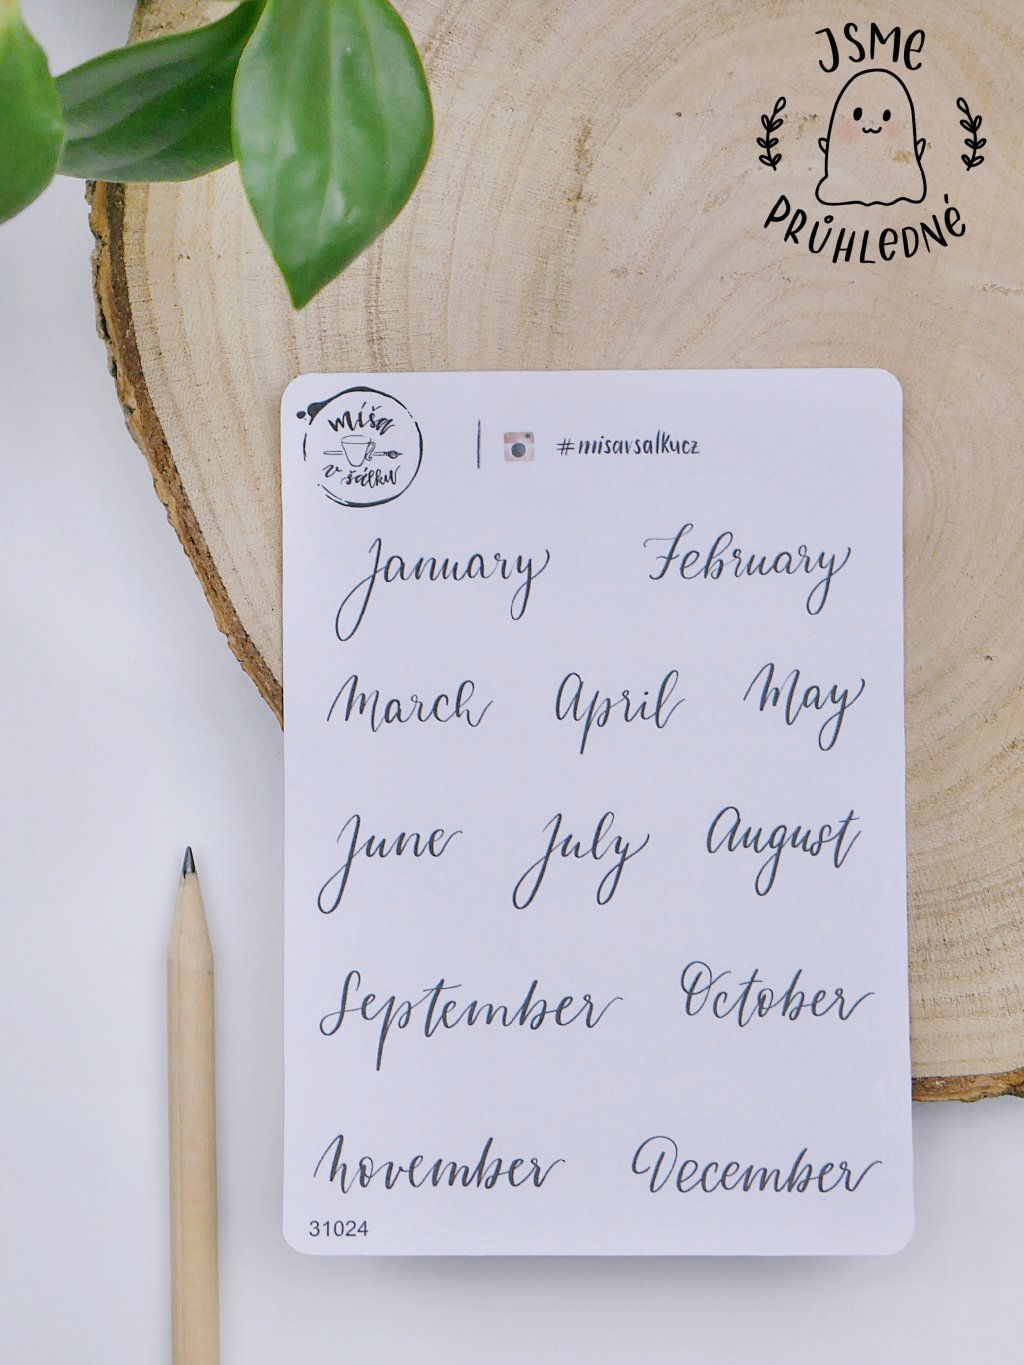 JSME
PRŮHLEDNÉ
míša
v šálku
#misavsalkucz
January February
March April May
June July August
September October
November December
31024